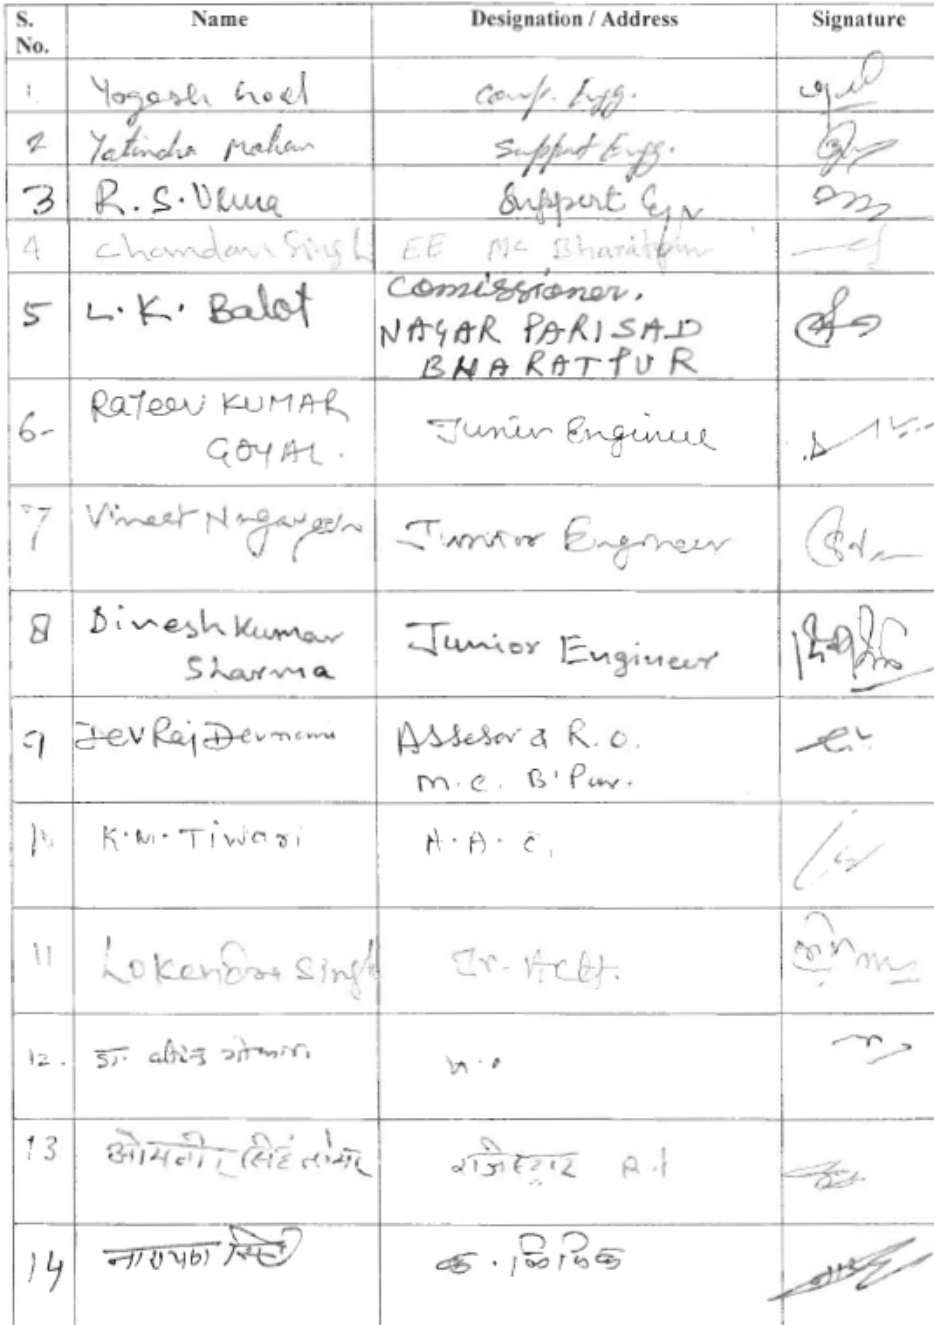 S. No. Name Designation / Address Signature
1. Yogesh Goel Comp. Engg.
2 Yatindra Mohan Support Engg.
3 R. S. Verma Support Egr
4 Chandan Singh EE MC Bharatpur
5 L. K. Balot Comissioner.
NAGAR PARISAD
BHARATPUR
6- RAJEEV KUMAR
GOYAL. Junior Engineer
7 Vineet Junior Engineer
8 Dinesh Kumar
Sharma Junior Engineer
9 Dev Raj Assesor & R.O.
M.C. B'Pur.
10 K.M. Tiwari A.A.C.
11 Lokendra Singh Jr. Acctt.
12. डा.
13 सिंह तोमर R.I
14 नारायण सिंह क. लिपिक